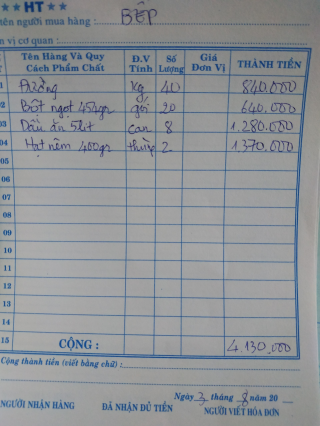 ★★ HT ★★
tên người mua hàng : BẾP
n vị cơ quan :
T Tên Hàng Và Quy Cách Phẩm Chất Đ.V Tính Số Lượng Giá Đơn Vị THÀNH TIỀN
1 Đường kg 40 840.000
02 Bột ngọt 454gr gói 20 640.000
03 Dầu ăn 5lit can 8 1.280.000
04 Hạt nêm 400gr thùng 2 1.370.000
05
06
07
08
09
10
11
12
13
14
15 CỘNG : 4.130.000
Cộng thành tiền (viết bằng chữ) :
Ngày 3 tháng 8 năm 20
NGƯỜI NHẬN HÀNG ĐÃ NHẬN ĐỦ TIỀN NGƯỜI VIẾT HÓA ĐƠN